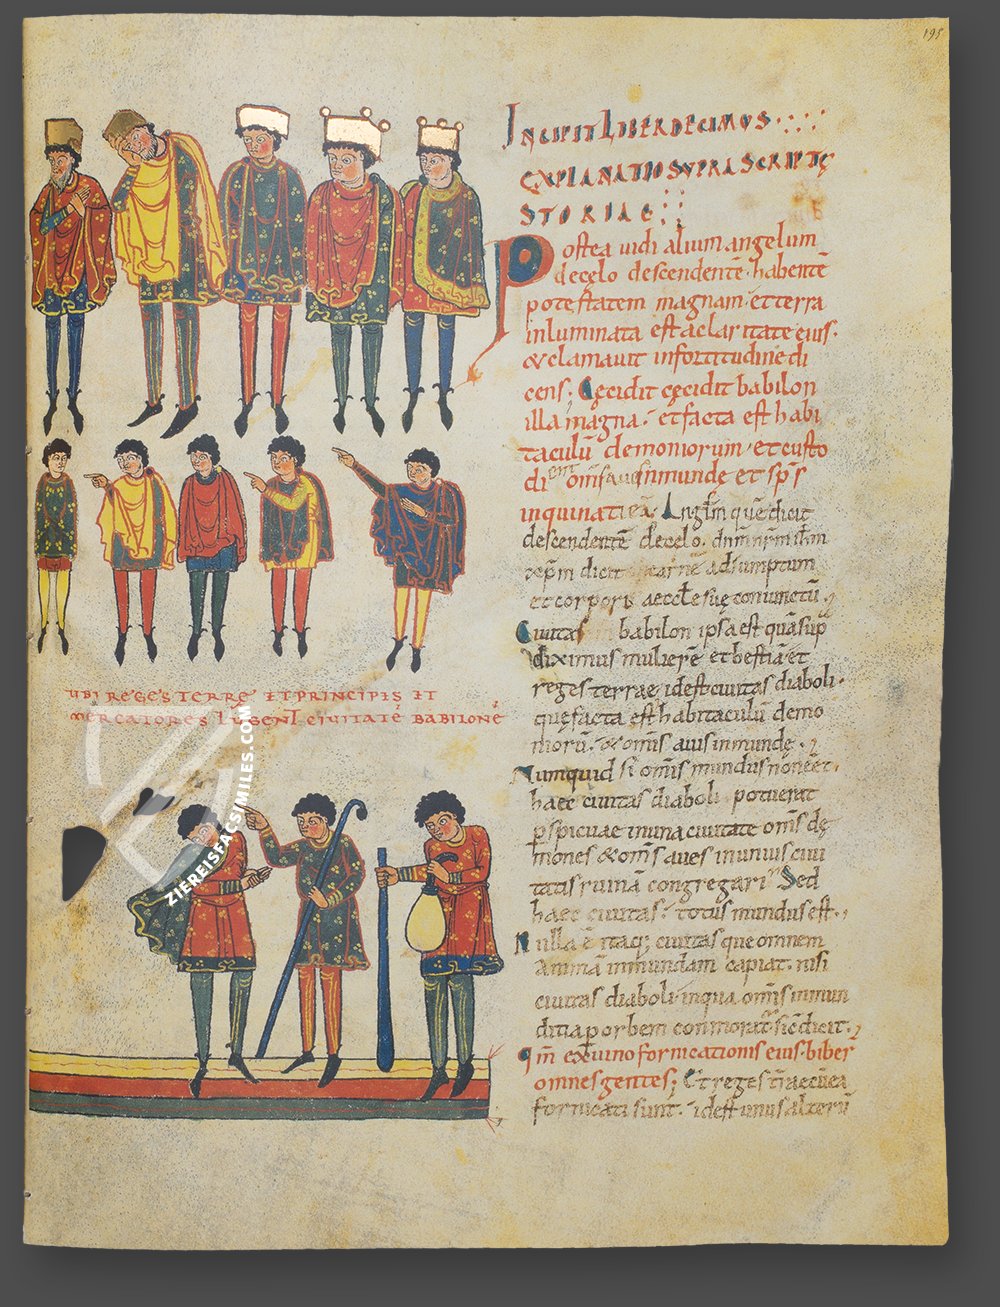 195
INCIPIT LIBER DECIMUS
EXPLANATIO SUPRASCRIPTE
STORIAE
Postea uidi alium angelum
de celo descendentē habentē
potestatem magnam et terra
inluminata est a claritate eius.
& clamauit in fortitudine di
cens. Cecidit cecidit babilon
illa magna. et facta est habi
taculū demoniorum et custo
di omīs inmunde et sps
inquinati Angłm quē dicit
descendentē de celo. dnm nrm
xpm dicit carnē adsumptum
et corpori aecłesue coniunctū
Ciuitas babilon ipsa est quā sup
diximus mulierē et bestiā et
reges terrae id est ciuitas diaboli.
que facta est habitaculū demo
niorū. & omīs auis inmunde.
Numquid si omīs mundus non eēt
haec ciuitas diaboli potuerat
pspicuae in una ciuitate omīs de
mones & omīs aues in unius ciui
tatis ruinā congregari Sed
haec ciuitas. totus mundus est.
Nulla ē itaq; ciuitas que omnem
animā inmundam capiat. nisi
ciuitas diaboli in qua omīs inmun
ditia p orbem conmorat sic dicit.
Qm ex uino fornicationis eius biber
omnes gentes; Et reges
fornicati sunt. id est unus alteriū
UBI REGES TERRE ET PRINCIPIS ET
MERCATORES LUGENT CIUITATĒ BABILONĒ
ZIEREISFACSIMILES.COM